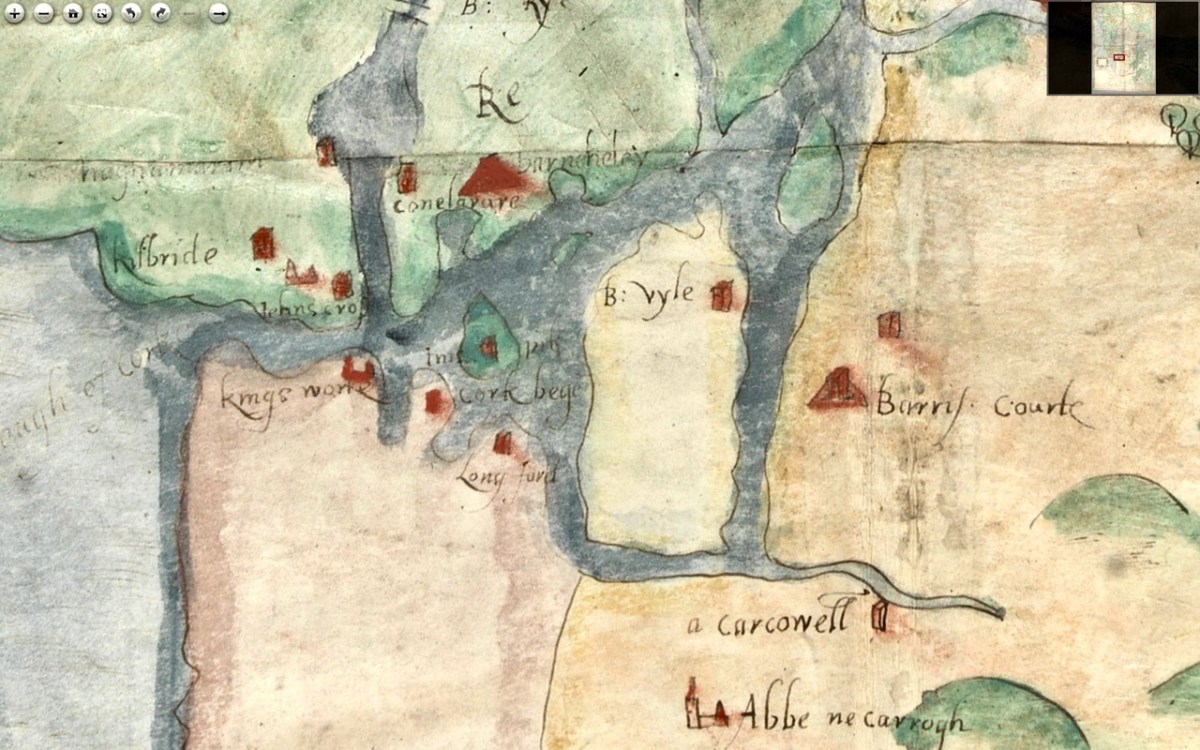 B:
Re
barncheley
conelavare
kilbride
Johns
B: Vyle
kings worke
Cork bege
Long ford
Barris. Courte
a carcowell
Abbe ne carrogh